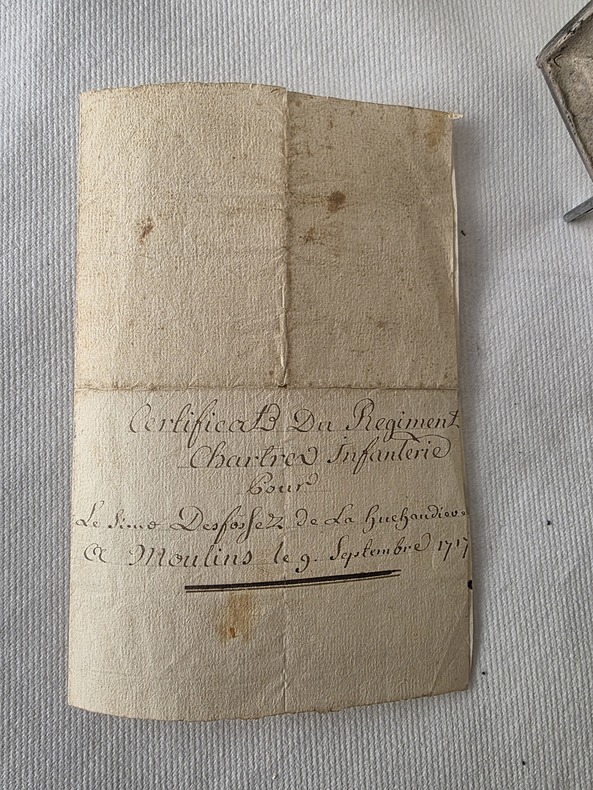 Certificats Du Regiment
Chartres Infanterie
Pour
Le Sieur Desfossez de La huchandiere
A Moulins le 9. Septembre 1717